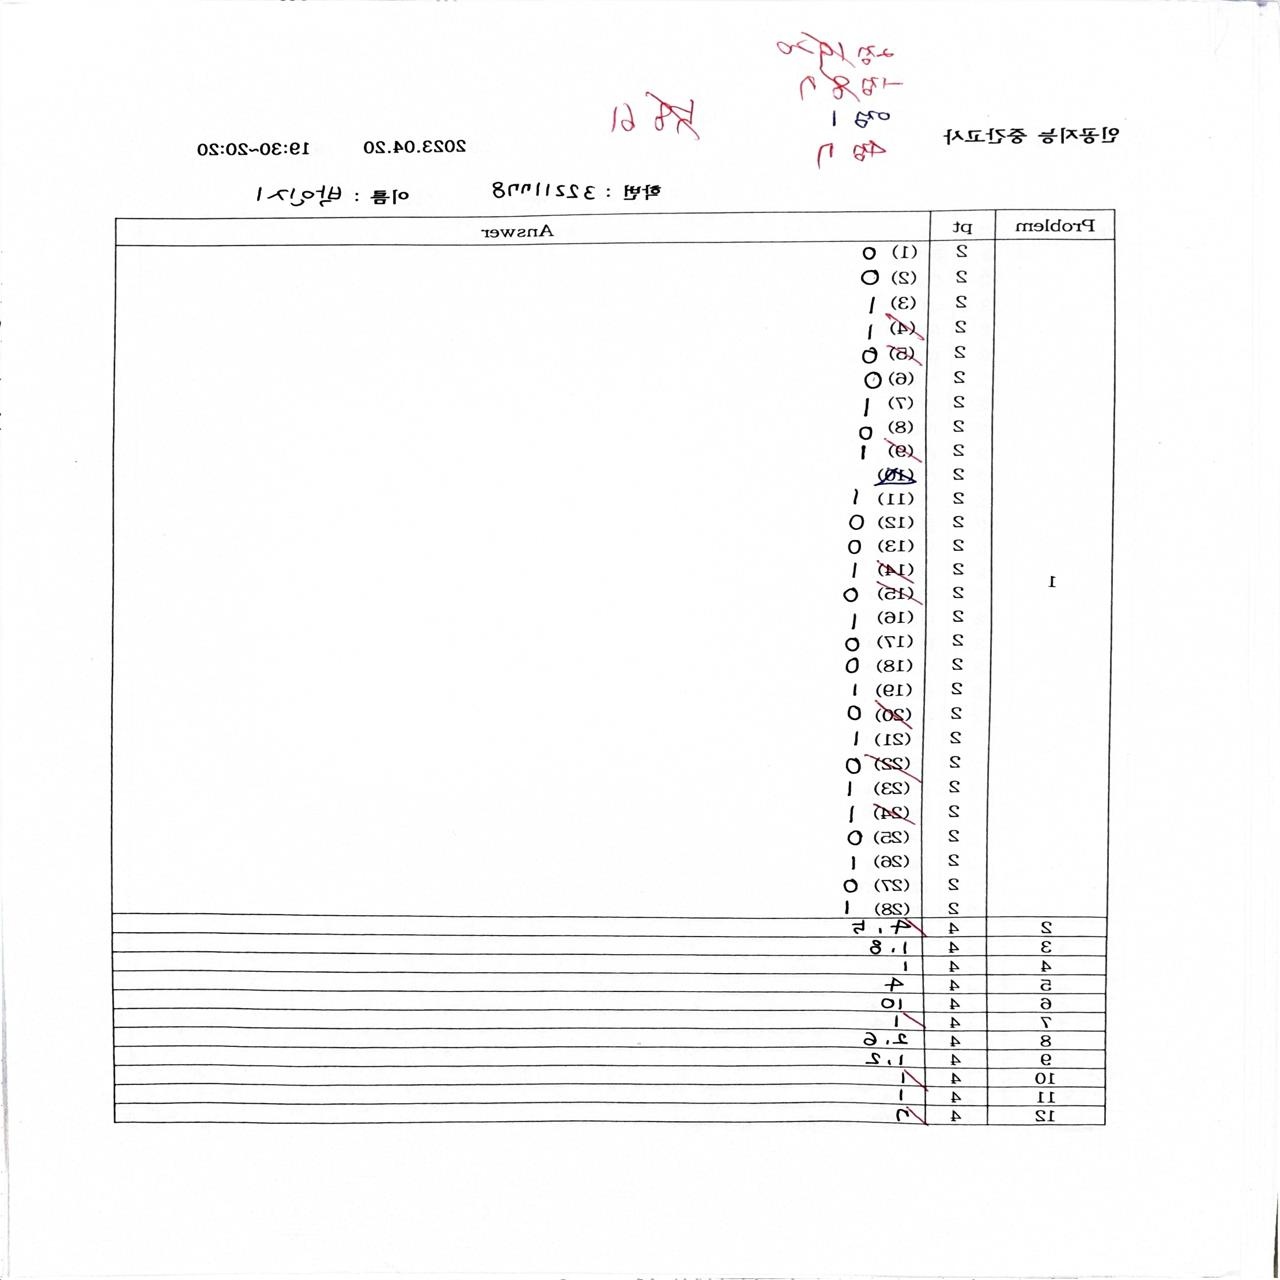 인공지능 중간고사 2023.04.20 19:30~20:20
학번 : 32211778 이름 :
Problem pt Answer
1
2 (1) 0
2 (2) 0
2 (3) 1
2 (4) 1
2 (5) 0
2 (6) 0
2 (7) 1
2 (8) 0
2 (9) 1
2 (10)
2 (11) 1
2 (12) 0
2 (13) 0
2 (14) 1
2 (15) 0
2 (16) 1
2 (17) 0
2 (18) 0
2 (19) 1
2 (20) 0
2 (21) 1
2 (22) 0
2 (23) 1
2 (24) 1
2 (25) 0
2 (26) 1
2 (27) 0
2 (28) 1
2 4 4.5
3 4 1.8
4 4 1
5 4 4
6 4 10
7 4 1
8 4 2.6
9 4 1.2
10 4 1
11 4 1
12 4 2